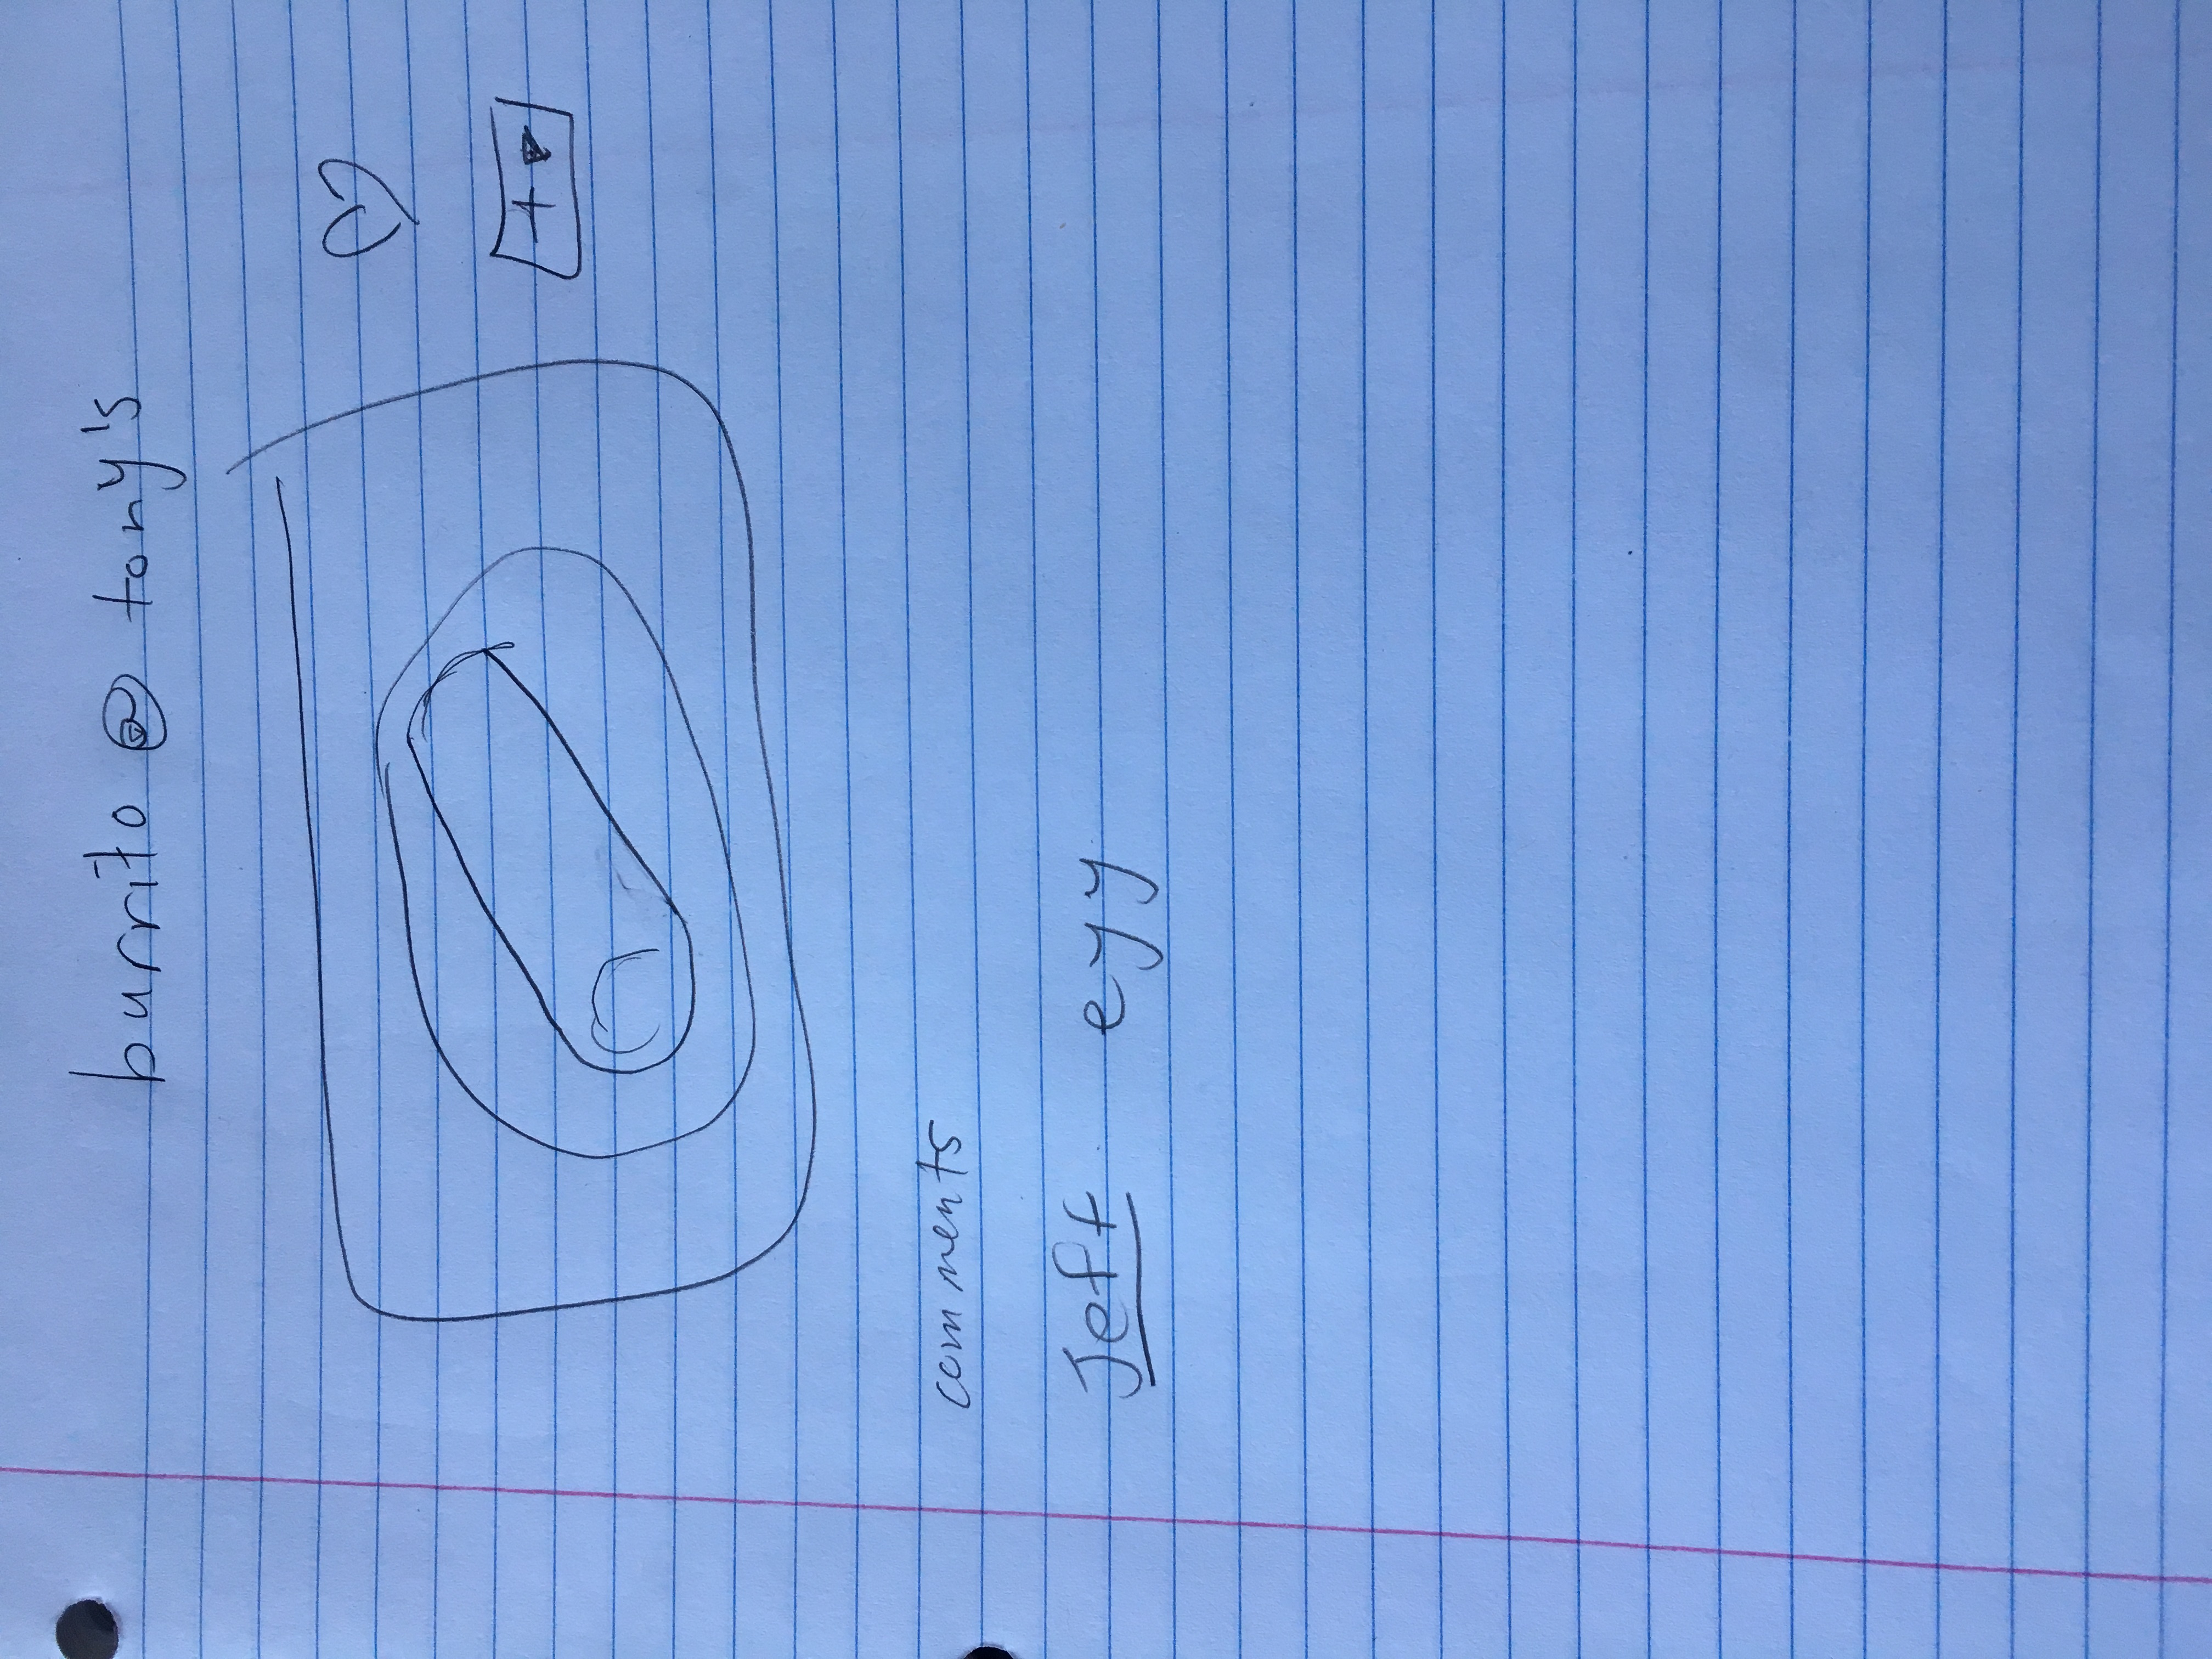 burrito @ tony's
+
comments
Jeff eyy